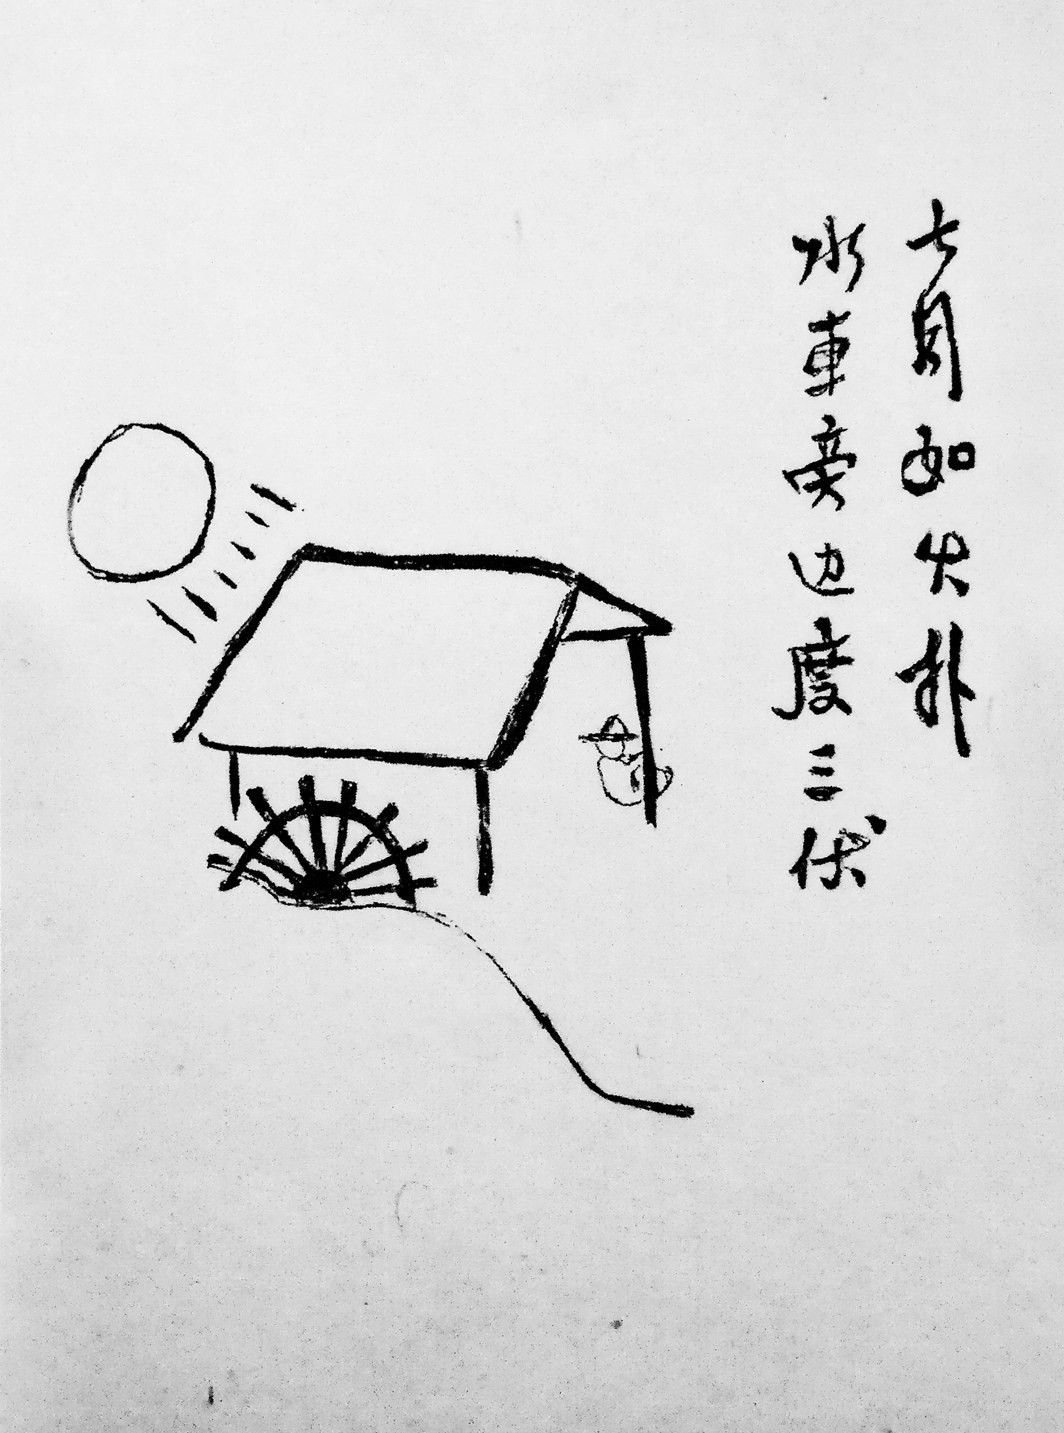 七月如火扑
水車旁边度三伏